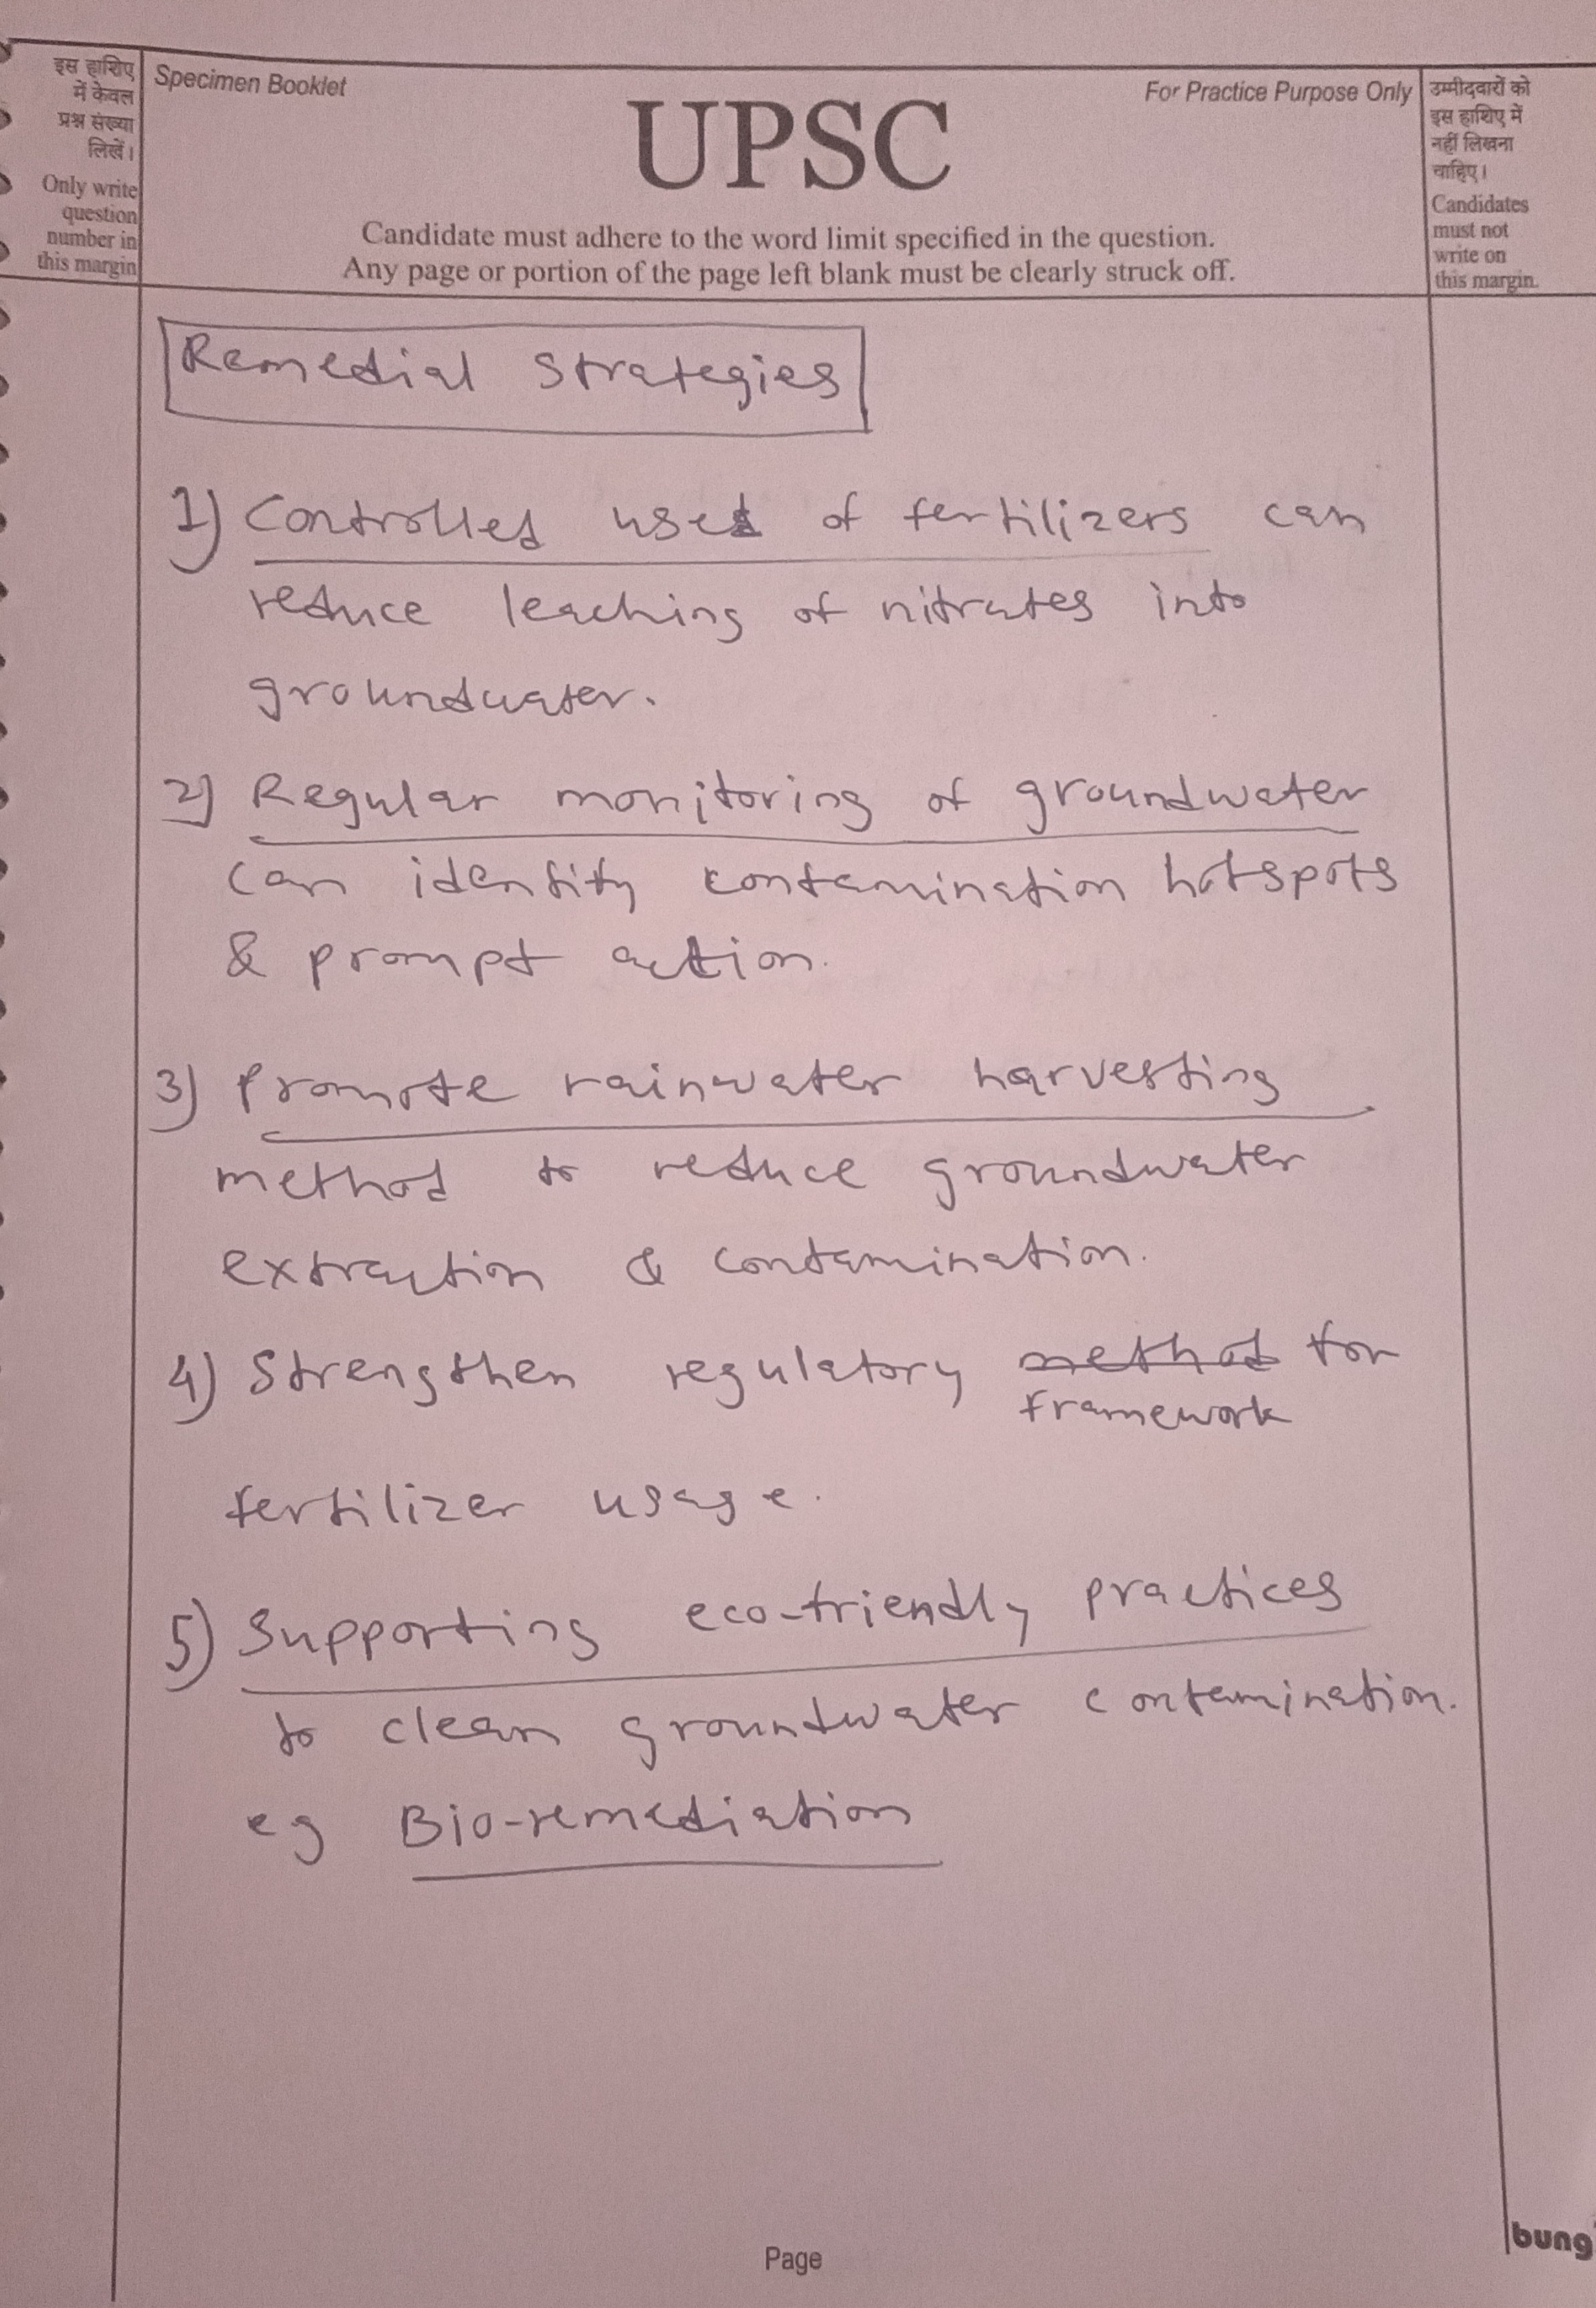 इस हाशिए
में केवल
प्रश्न संख्या
लिखें।
Only write
question
number in
this margin
Specimen Booklet
For Practice Purpose Only
UPSC
Candidate must adhere to the word limit specified in the question.
Any page or portion of the page left blank must be clearly struck off.
उम्मीदवारों को
इस हाशिए में
नहीं लिखना
चाहिए।
Candidates
must not
write on
this margin.
Remedial Strategies
1) Controlled use of fertilizers can
reduce leaching of nitrates into
groundwater.
2) Regular monitoring of groundwater
can identify contamination hotspots
& prompt action.
3) Promote rainwater harvesting
method to reduce groundwater
extraction & contamination.
4) Strengthen regulatory method for
framework
fertilizer usage.
5) Supporting eco-friendly practices
to clean groundwater contamination.
eg Bio-remediation
Page
bung